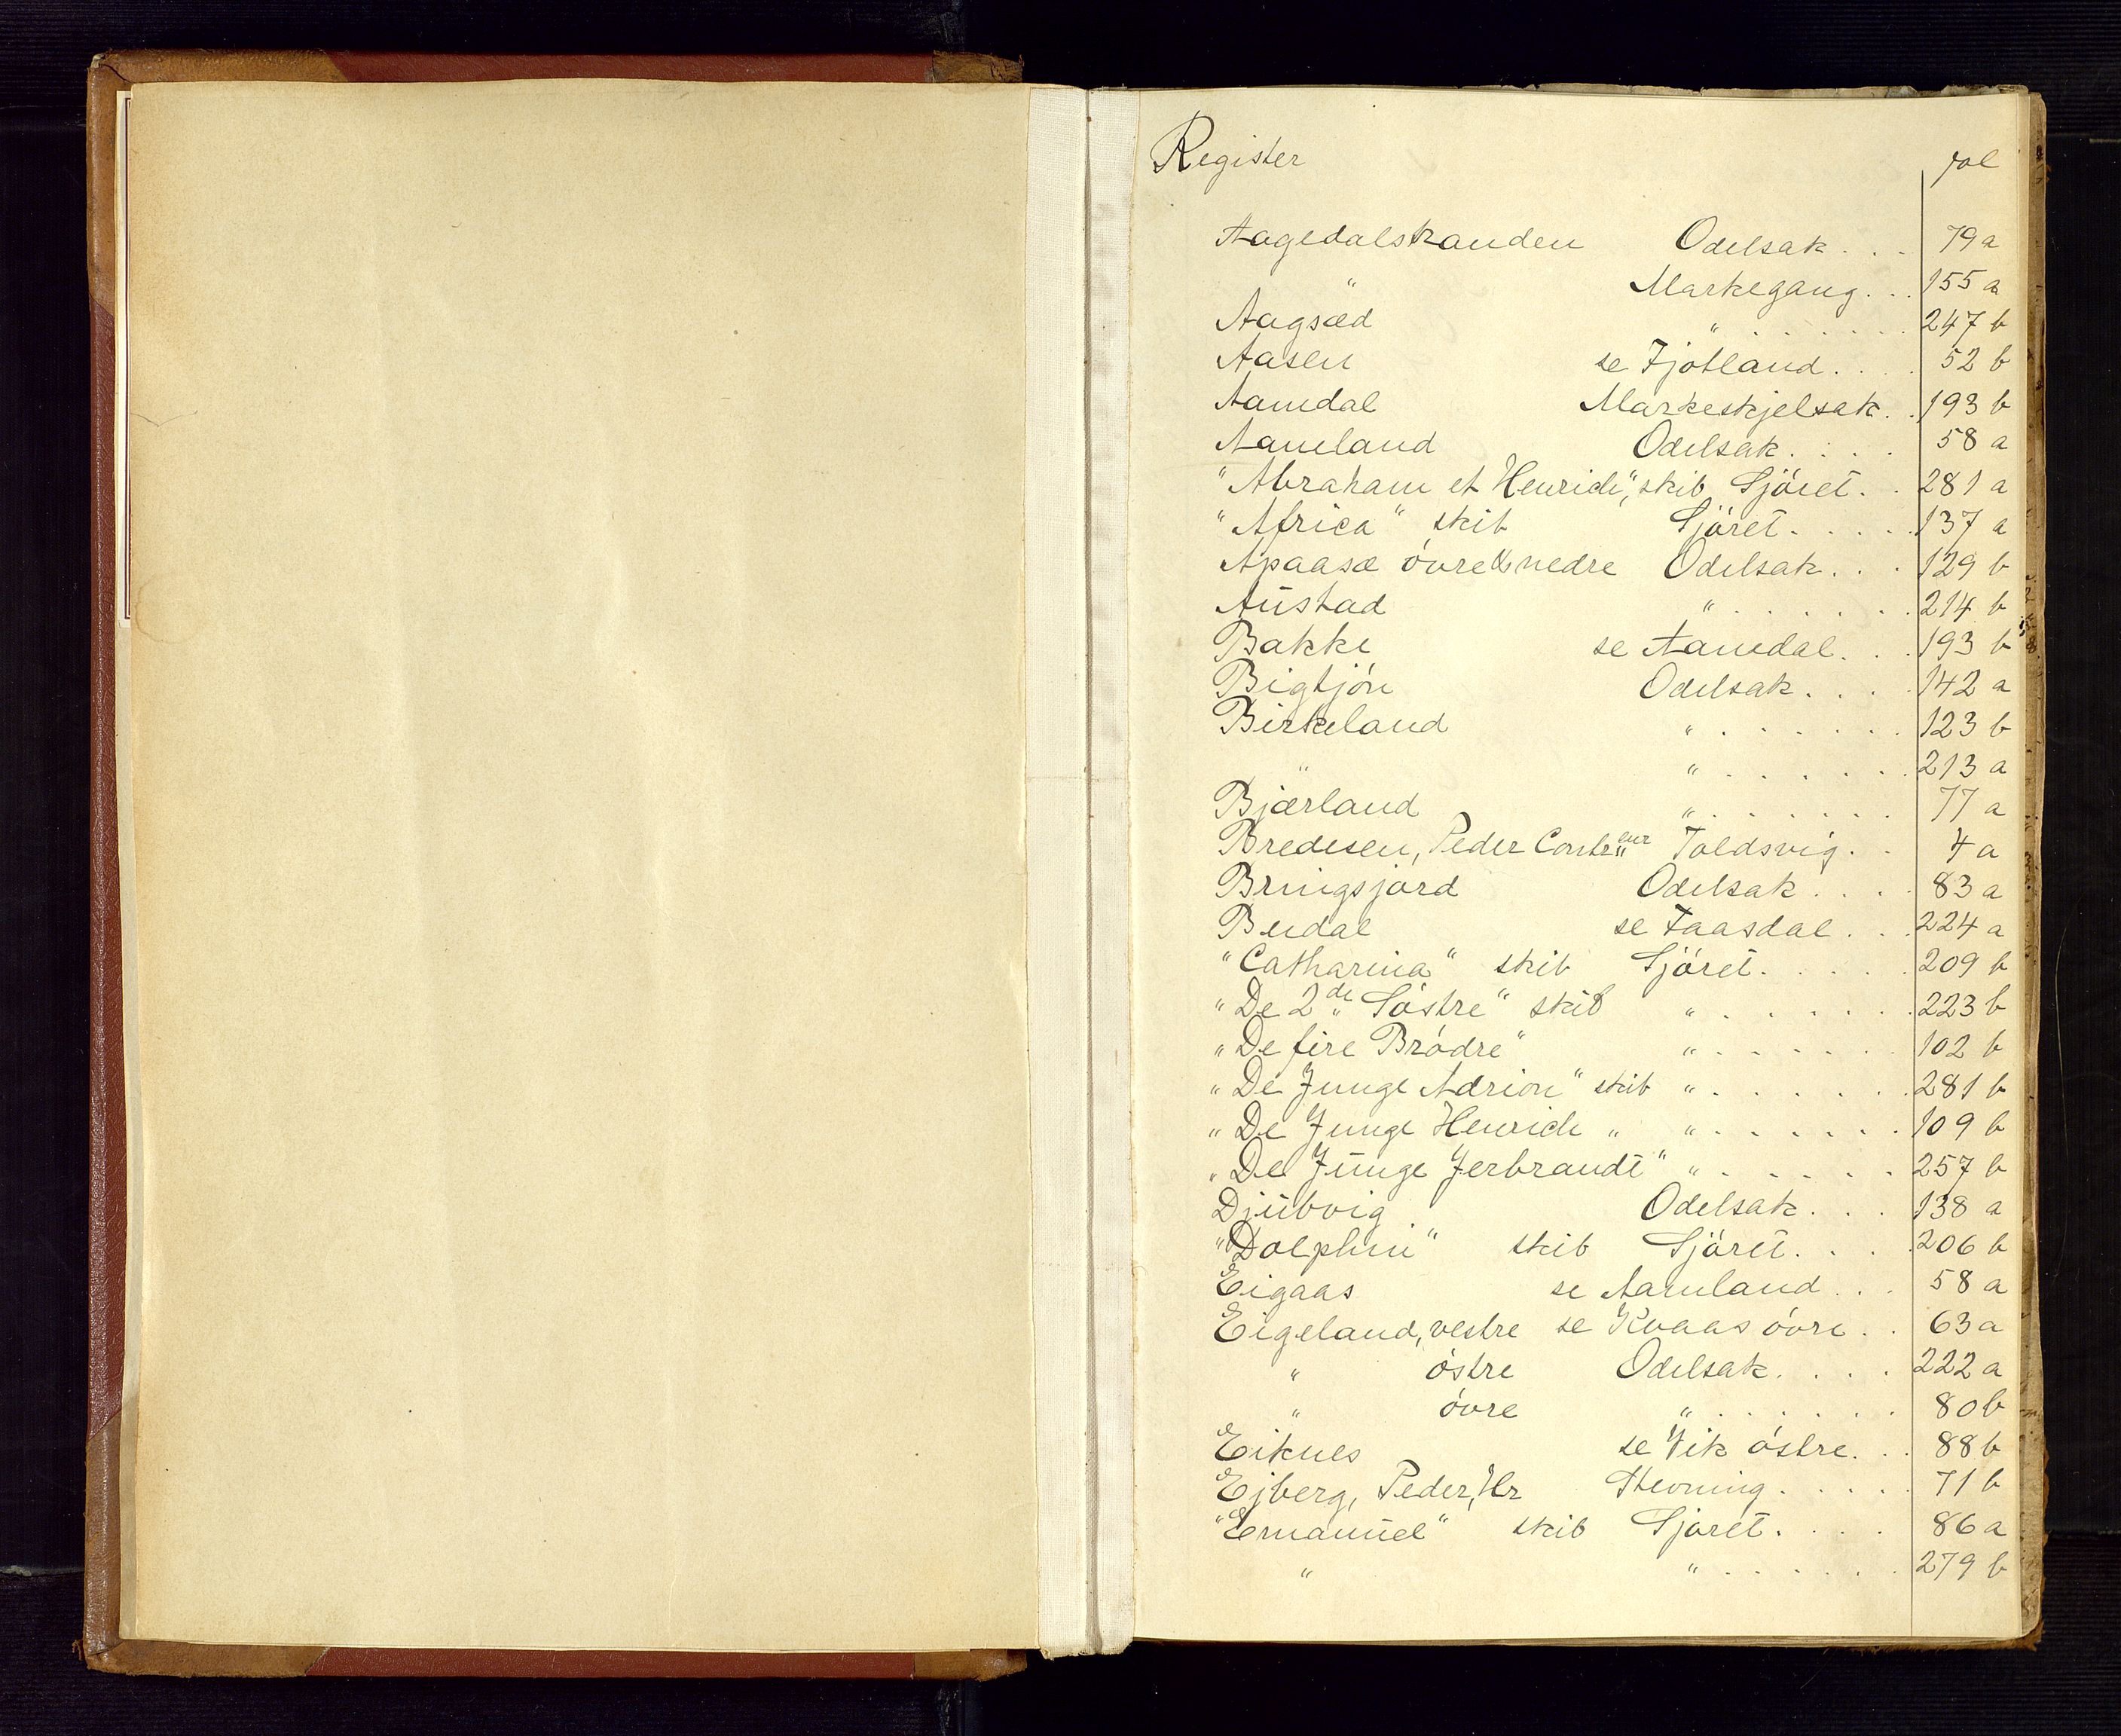 Register fol
Aagedalstranden Odelsak . . . 79 a
" Markegang . . . 155 a
Aagsæd " . . . . . . 247 b
Aasen se Fjotland . . . . 52 b
Aamdal Markeskjelsak . . 193 b
Aamland Odelsak . . . . 58 a
"Abraham et Henrich", skib Sjöret . . 281 a
"Africa" skib Sjöret . . . . . 137 a
Apaasæ övre & nedre Odelsak . . . 129 b
Austad " . . . . . . 214 b
Bakke se Aamdal . . . 193 b
Bigtjön Odelsak . . . . 142 a
Birkeland " . . . . . . 123 b
" " . . . . . . 213 a
Bjærland " . . . . . . 77 a
Bredesen, Peder Contreur Toldsvig . . 4 a
Bringsjord Odelsak . . . . 83 a
Budal se Faasdal . . . 224 a
"Catharina" skib Sjöret . . . . . 209 b
"De 2de Söstre" skib " . . . . . . 223 b
"De fire Brödre" " . . . . . . 102 b
"De Junge Adrion" skib " . . . . . . 281 b
"De Junge Henrich " " . . . . . . 109 b
"De Junge Jerbrandt" " . . . . . . 257 b
Djubvig Odelsak . . . 138 a
"Dolphin" skib Sjöret . . . . 206 b
Eigaas se Aamland . . . 58 a
Eigeland, vestre se Kvaas övre . . 63 a
" östre Odelsak . . . . 222 a
" övre " . . . . . . 80 b
Eiknes se Vik östre . . 88 b
Ejberg, Peder, Hr Stevning . . . . . 71 b
"Emanuel" skib Sjöret . . . . 86 a
" " . . . . . . 279 b